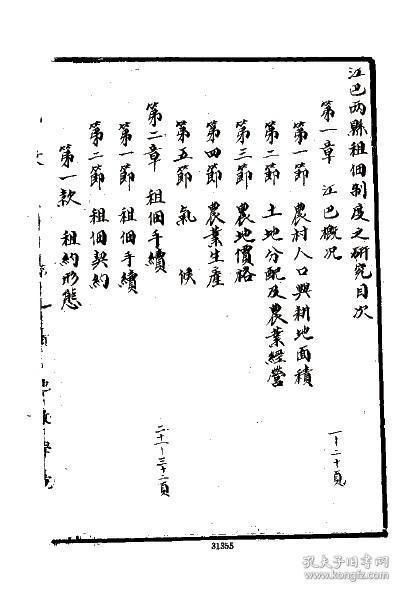 江巴两縣租佃制度之研究目次
第一章 江巴概况
一-二十頁
第一節 農村人口與耕地面積
第二節 土地分配及農業經營
第三節 農地價格
第四節 農業生産
第五節 氣候
第二章 租佃手續
二十一-三十二頁
第一節 租佃手續
第二節 租佃契約
第一款 租約形態
31355
孔夫子旧书网